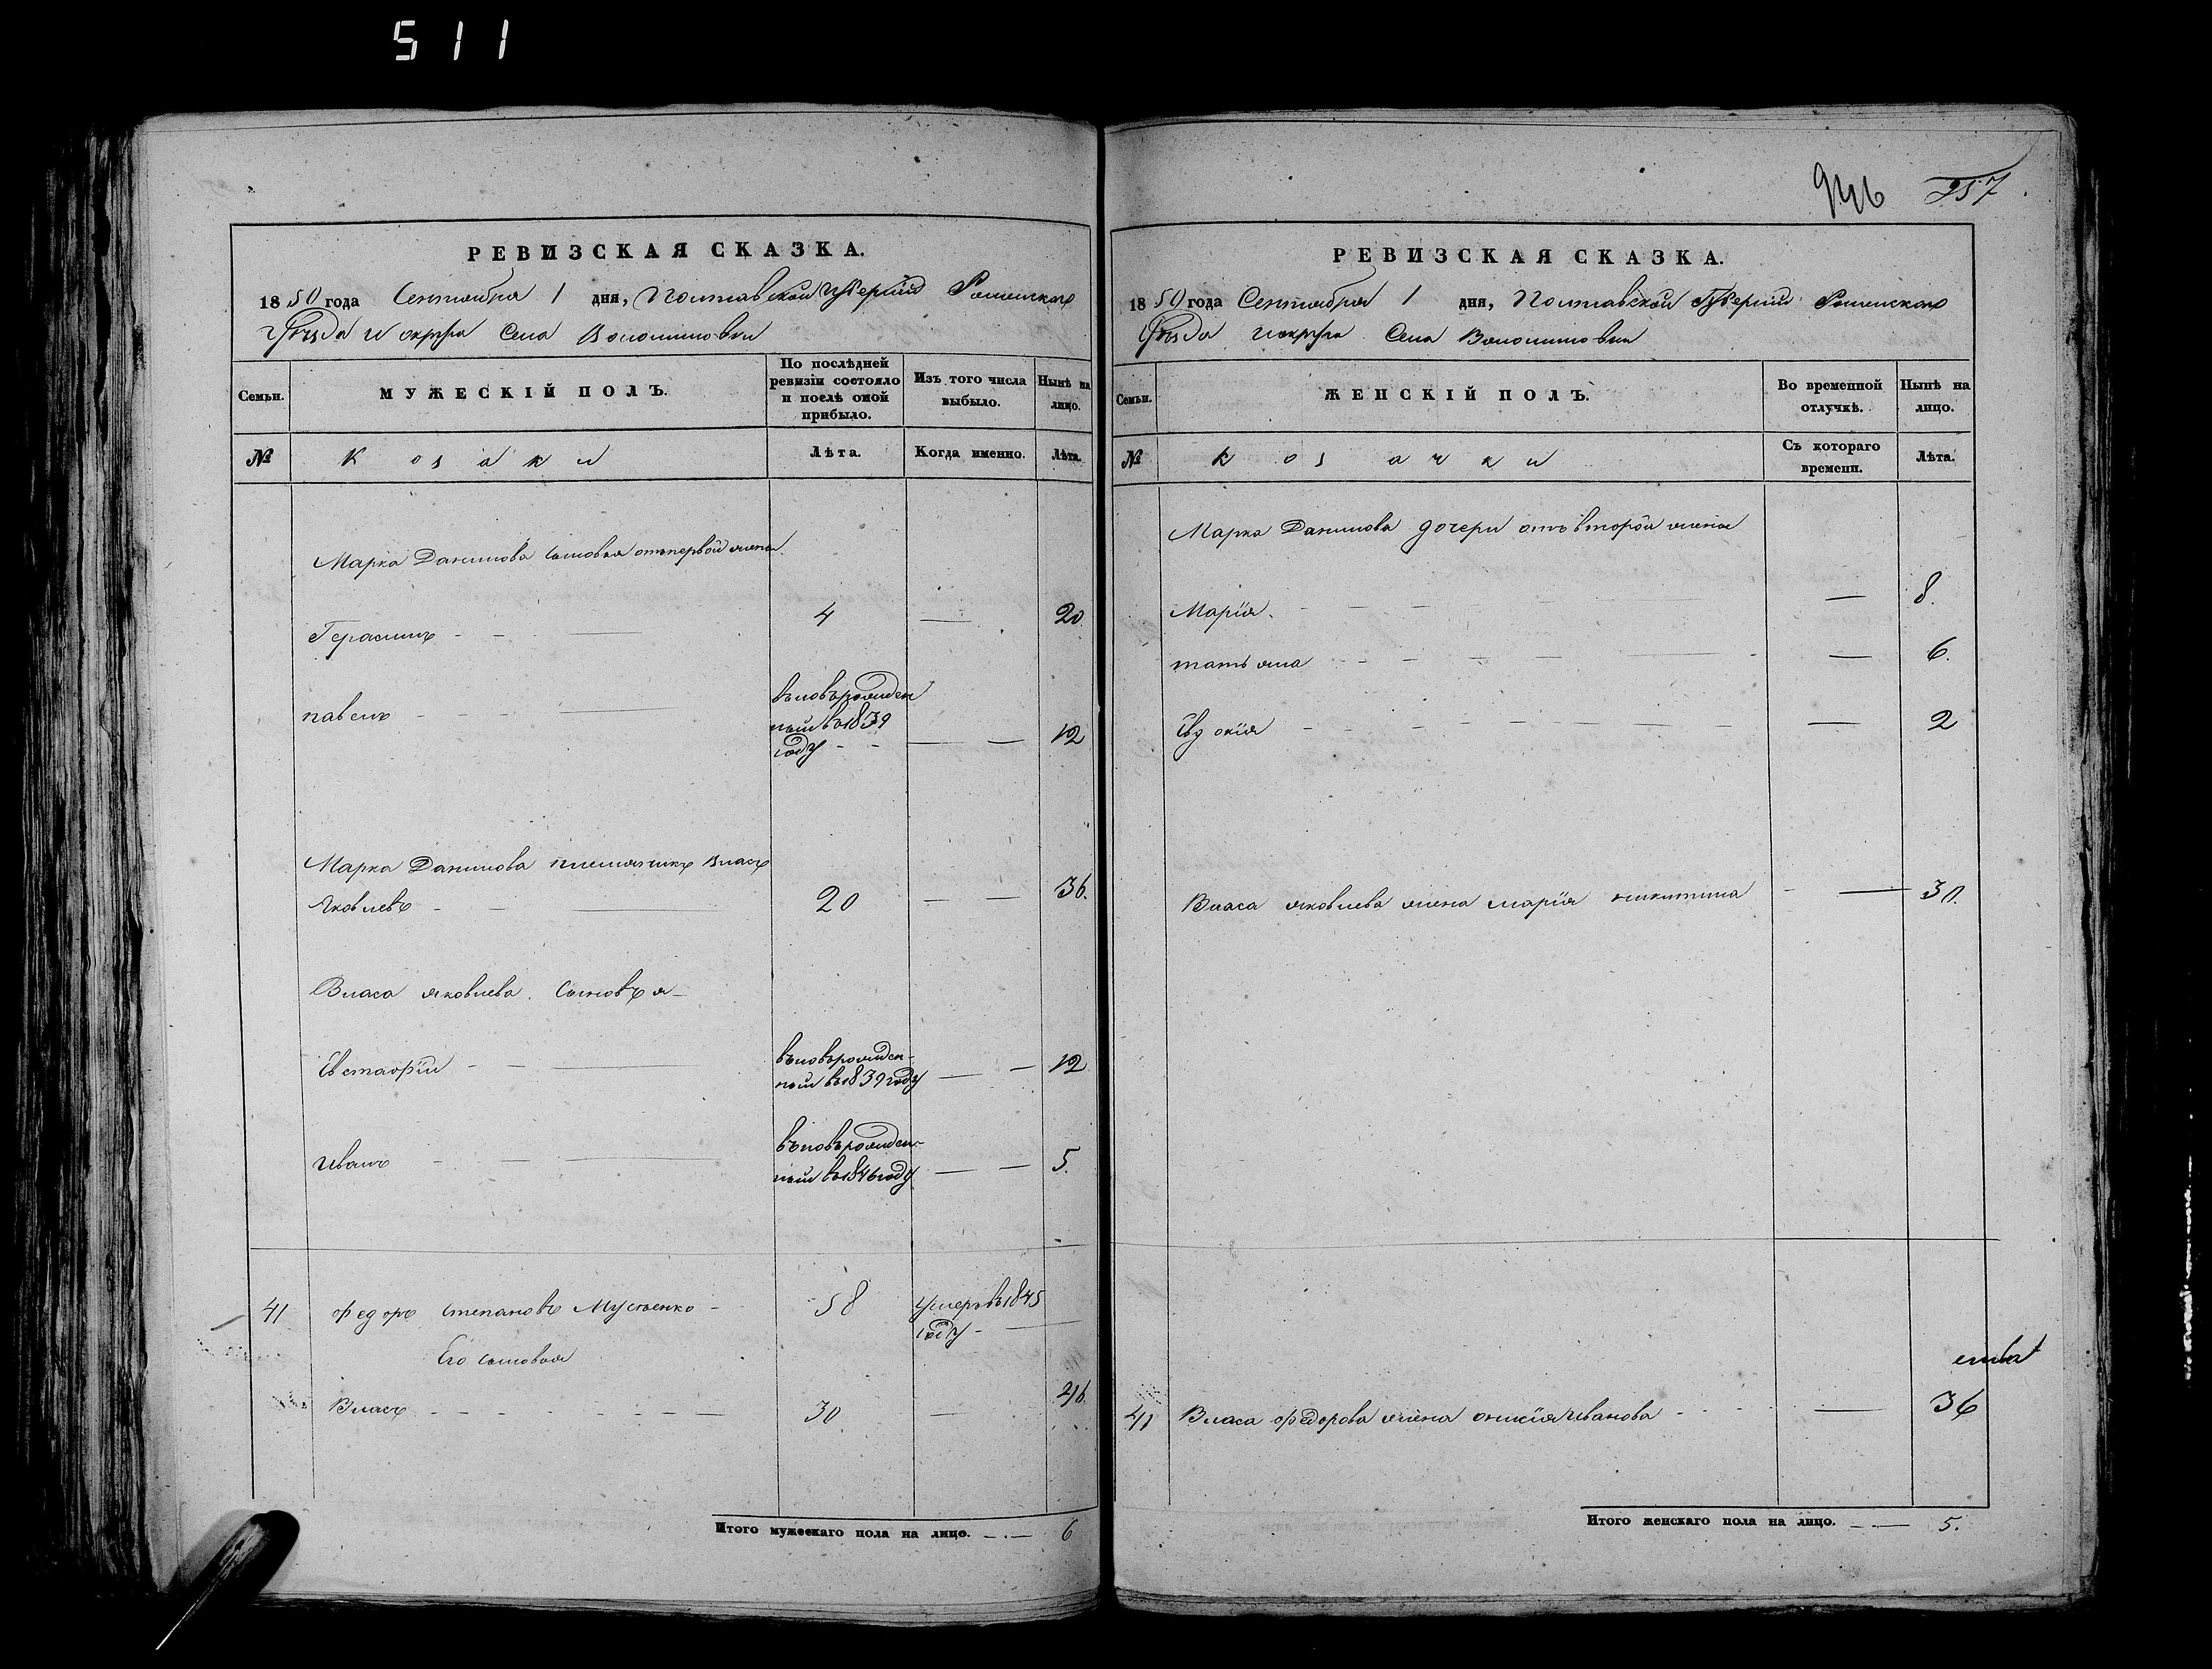 511
РЕВИЗСКАЯ СКАЗКА.
1850 года Сентября 1 дня, Полтавской Губерніи Роменскаго
Уѣзда и округа Села Волошиновки
Семьи.
МУЖЕСКІЙ ПОЛЪ.
По послѣдней ревизіи состояло и послѣ оной прибыло.
Изъ того числа выбыло.
Нынѣ на лицо.
№
Козаки
Лѣта.
Когда именно.
Лѣта.
Марка Данилова сыновья отъ первой жены
Герасимъ 4 — 20.
павелъ
вновьрожден
ный въ 1839
году — — 12
Марка Данилова племянникъ Власъ
Яковлевъ — 20 — — 36.
Власа яковлева Сыновъя
Евстафій
вновьрожден-
ный въ 1839 году — — 12
Иванъ
вновьрожден-
ный въ 1846 году — — 5.
41 федоръ степановъ Мусіенко 58 Умеръ въ 1845
году
Его сыновья
Власъ 30 — 46.
Итого мужескаго пола на лицо. 6
257
РЕВИЗСКАЯ СКАЗКА.
1850 года Сентября 1 дня, Полтавской Губерніи Роменскаго
Уѣзда и округа Села Волошиновки
Семьи.
ЖЕНСКІЙ ПОЛЪ.
Во временной отлучкѣ.
Нынѣ на лицо.
№
Козачки
Съ котораго времени.
Лѣта.
Марка Данилова дочери отъ второй жены
Марія. — 8.
татьяна — 6.
Евдокія — 2
Власа яковлева жена марія никитина — 30.
41 Власа федорова жена онисія Иванова — 36
Итого женскаго пола на лицо. 5.